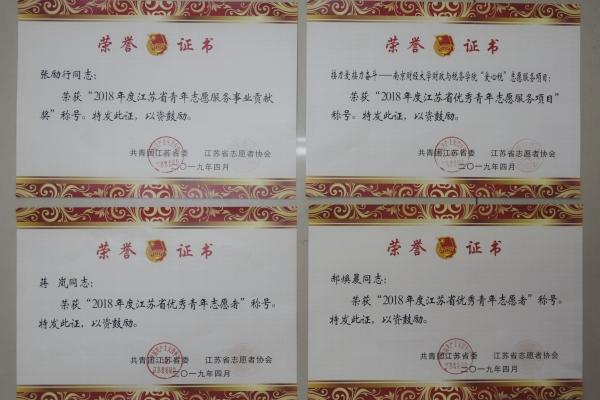 荣誉证书
张励行同志：
荣获“2018年度江苏省青年志愿服务事业贡献
奖”称号。特发此证，以资鼓励。
共青团江苏省委 江苏省志愿者协会
二〇一九年四月
荣誉证书
接力爱接力奋斗——南京财经大学财政与税务学院“爱心税”志愿服务项目：
荣获“2018年度江苏省优秀青年志愿服务项目”
称号。特发此证，以资鼓励。
共青团江苏省委 江苏省志愿者协会
二〇一九年四月
荣誉证书
蒋 岚同志：
荣获“2018年度江苏省优秀青年志愿者”称号。
特发此证，以资鼓励。
共青团江苏省委 江苏省志愿者协会
二〇一九年四月
荣誉证书
郝焕晨同志：
荣获“2018年度江苏省优秀青年志愿者”称号。
特发此证，以资鼓励。
共青团江苏省委 江苏省志愿者协会
二〇一九年四月